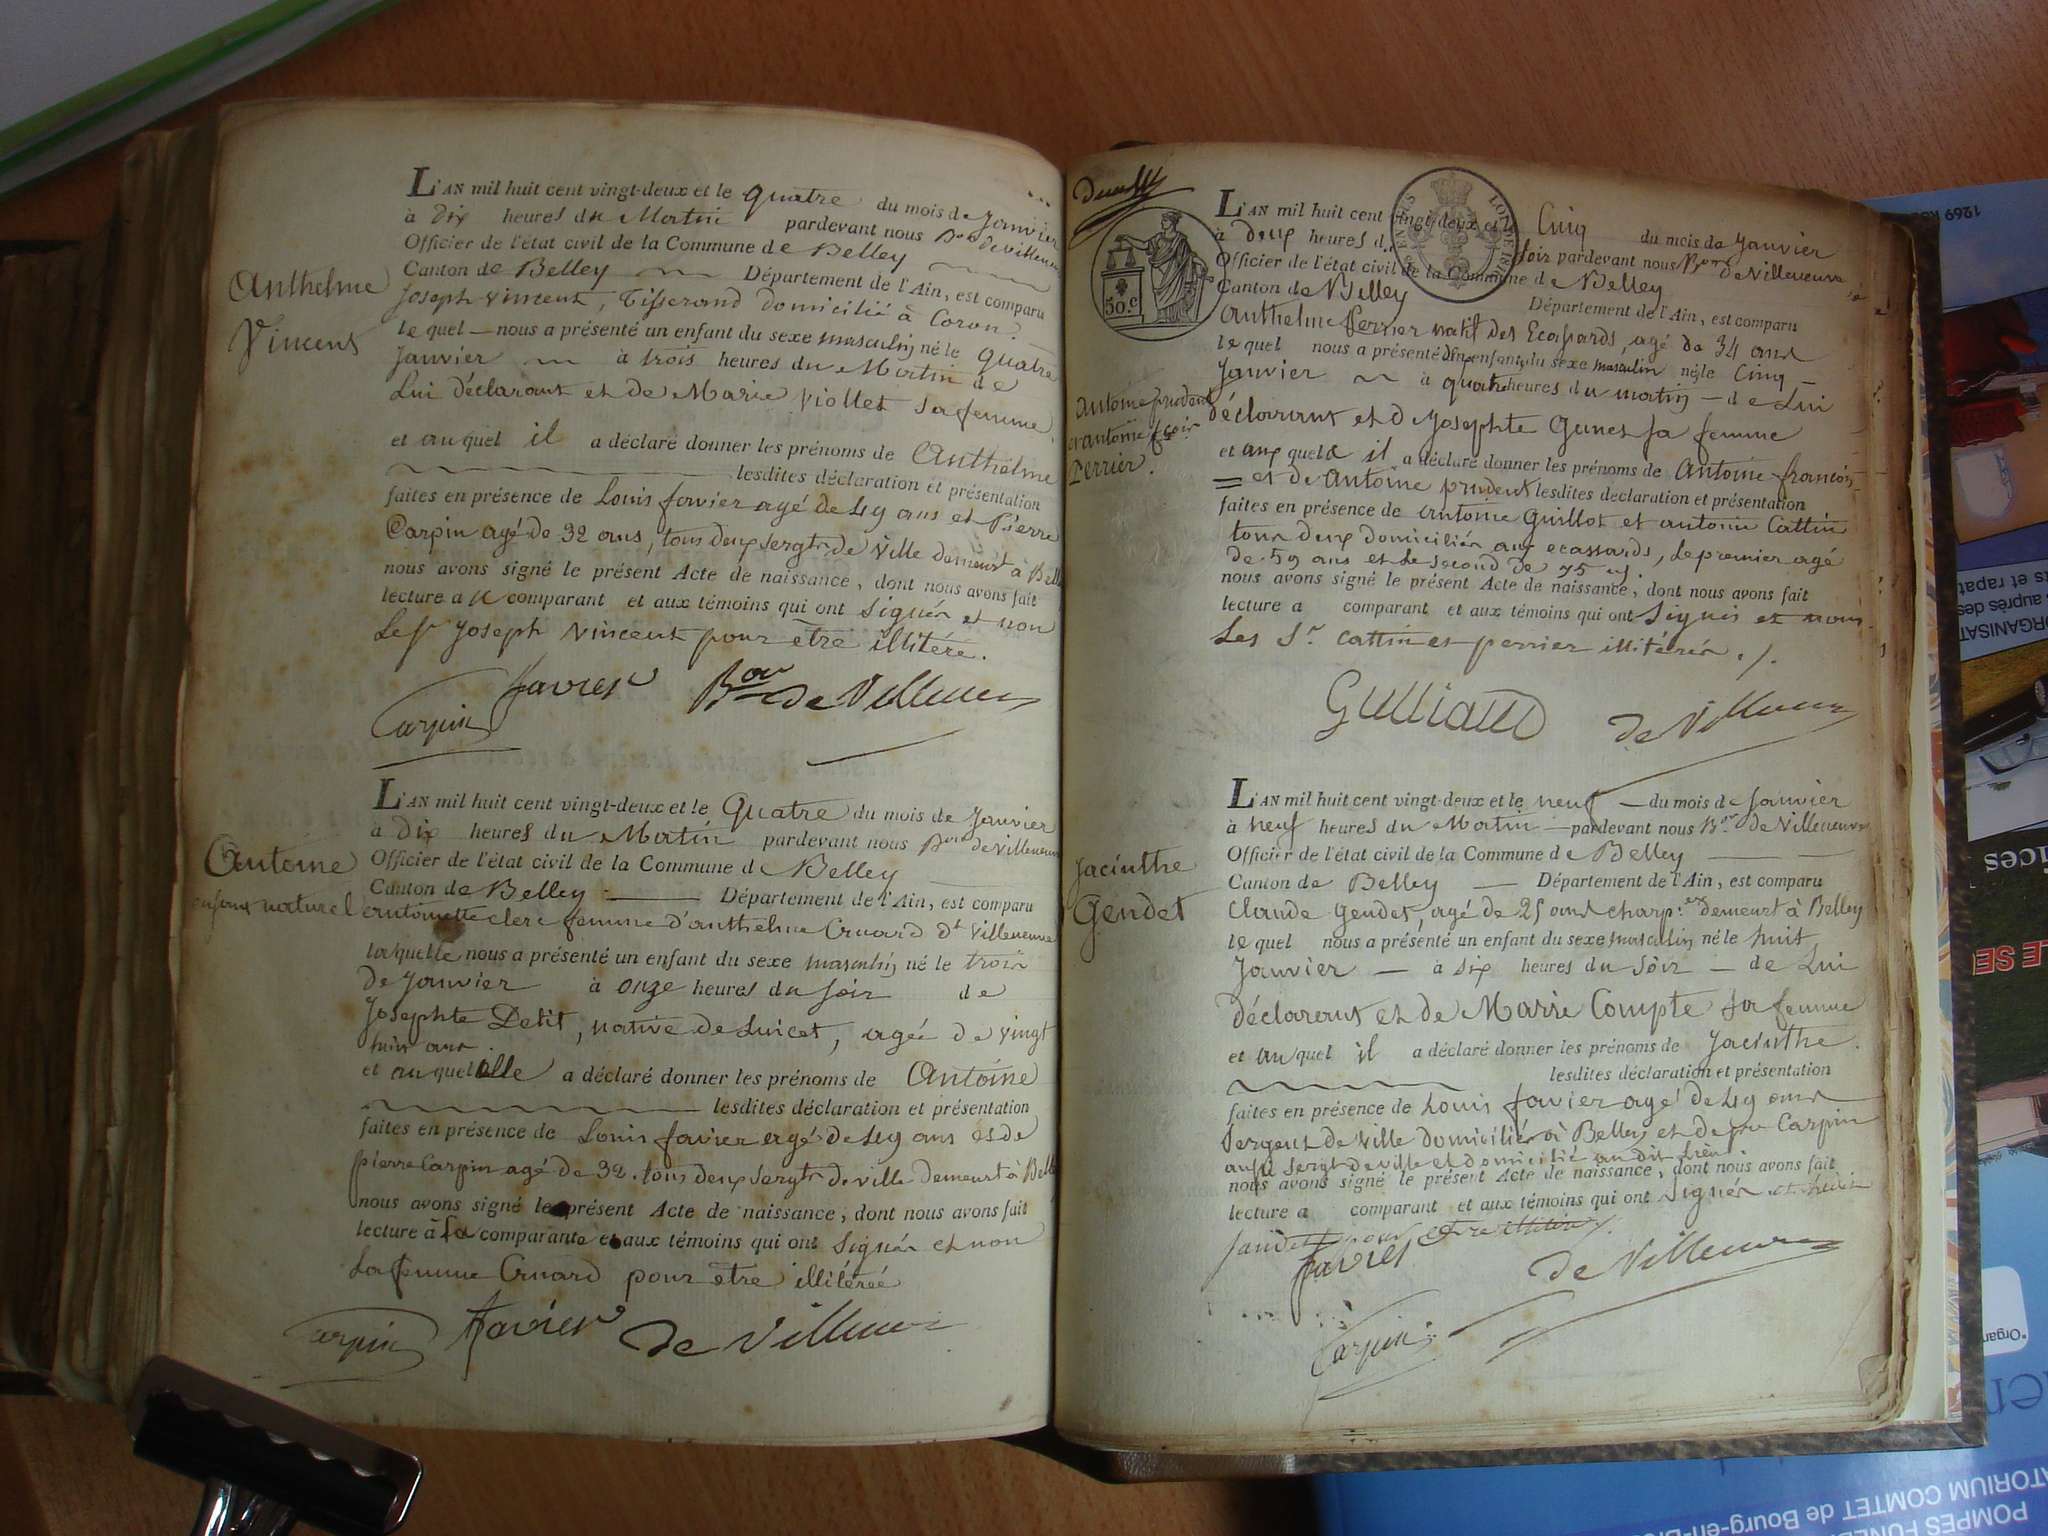 L'AN mil huit cent vingt-deux et le quatre du mois de Janvier
à dix heures du Matin pardevant nous Bon de Villeneuve
Officier de l'état civil de la Commune de Belley
Canton de Belley Département de l'Ain, est comparu
Joseph Vincent, Tisserand domicilié à Coron
lequel nous a présenté un enfant du sexe masculin né le quatre
Janvier à trois heures du Matin de
Lui déclarant et de Marie Viollet sa femme
et auquel il a déclaré donner les prénoms de Anthelme
lesdites déclaration et présentation
faites en présence de Louis favier agé de 49 ans et Pierre
Carpin agé de 32 ans, tous deux sergts de Ville demeurt à Bell
nous avons signé le présent Acte de naissance, dont nous avons fait
lecture a u comparant et aux témoins qui ont signés et non
Le sr Joseph Vincent pour être illitéré.
Anthelme
Vincent
favier Bon de Villeneuve
Carpin
L'AN mil huit cent vingt-deux et le Quatre du mois de Janvier
à dix heures du Matin pardevant nous Bon de Villeneuve
Officier de l'état civil de la Commune de Belley
Canton de Belley Département de l'Ain, est comparu
antoinette clerc femme d'anthelme Cruard dt Villeneuve
laquelle nous a présenté un enfant du sexe masculin né le trois
de Janvier à onze heures du soir de
Josephte Petit, native de Luicet, agée de vingt
huit ans.
et auquel elle a déclaré donner les prénoms de Antoine
lesdites déclaration et présentation
faites en présence de Louis favier agé de 49 ans et de
pierre Carpin agé de 32. tous deux sergts de ville demeurt à Bell
nous avons signé le présent Acte de naissance, dont nous avons fait
lecture à la comparante et aux témoins qui ont signés et non
La femme Cruard pour être illitérée
Antoine
enfant naturel
Carpin favier de Villeneuve
50.c
L'AN mil huit cent vingt-deux et le Cinq du mois de Janvier
à deux heures du soir pardevant nous Bon de Villeneuve
Officier de l'état civil de la Commune de Belley
Canton de Belley Département de l'Ain, est comparu
Anthelme Perrier natif des Ecassards, agé de 34 ans
lequel nous a présenté deux enfants du sexe masculin nés le Cinq
Janvier à quatre heures du matin de Lui
déclarant et de Josephte Gunet sa femme
et auxquels il a déclaré donner les prénoms de Antoine françois
et de Antoine prudent lesdites déclaration et présentation
faites en présence de antoine Guillot et antoine Cattin
tous deux domiciliés aux ecassards, le premier agé
de 59 ans et le second de 75
nous avons signé le présent Acte de naissance, dont nous avons fait
lecture a comparant et aux témoins qui ont signés et non
Les Srs Cattin et perrier illitérés ./.
antoine prudent
et antoine fçois
Perrier.
de Villeneuve
L'AN mil huit cent vingt-deux et le neuf du mois de Janvier
à neuf heures du Matin pardevant nous Bon de Villeneuve
Officier de l'état civil de la Commune de Belley
Canton de Belley Département de l'Ain, est comparu
Claude Gendet, agé de 25 ans charp.er demeurt à Belley
lequel nous a présenté un enfant du sexe masculin né le huit
Janvier à six heures du soir de Lui
déclarant et de Marie Compte sa femme
et auquel il a déclaré donner les prénoms de Jacinthe.
lesdites déclaration et présentation
faites en présence de Louis favier agé de 49 ans
sergent de ville domicilié à Belley et de pre Carpin
aussi sergt de ville et domicilié au dit Lieu.
nous avons signé le présent Acte de naissance, dont nous avons fait
lecture a comparant et aux témoins qui ont signés
pour être illitéré
Jacinthe
Gendet
favier de Villeneuve
Carpin
POMPES
ATORIUM COMTET de Bourg-en-